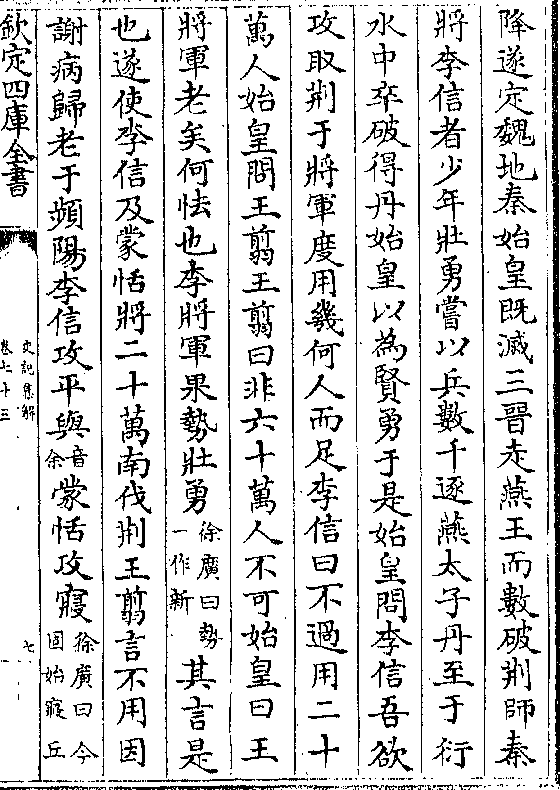 降遂定魏地秦始皇既滅三晉走燕王而數破荆師秦
將李信者少年壯勇嘗以兵數千逐燕太子丹至于衍
水中卒破得丹始皇以為賢勇于是始皇問李信吾欲
攻取荆于將軍度用幾何人而足李信曰不過用二十
萬人始皇問王翦王翦曰非六十萬人不可始皇曰王
將軍老矣何怯也李將軍果勢壯勇徐廣曰勢一作新其言是
也遂使李信及蒙恬將二十萬南伐荆王翦言不用因
謝病歸老于頻陽李信攻平與音余蒙恬攻寢徐廣曰今固始寢丘
欽定四庫全書
史記集解
卷七十三
七